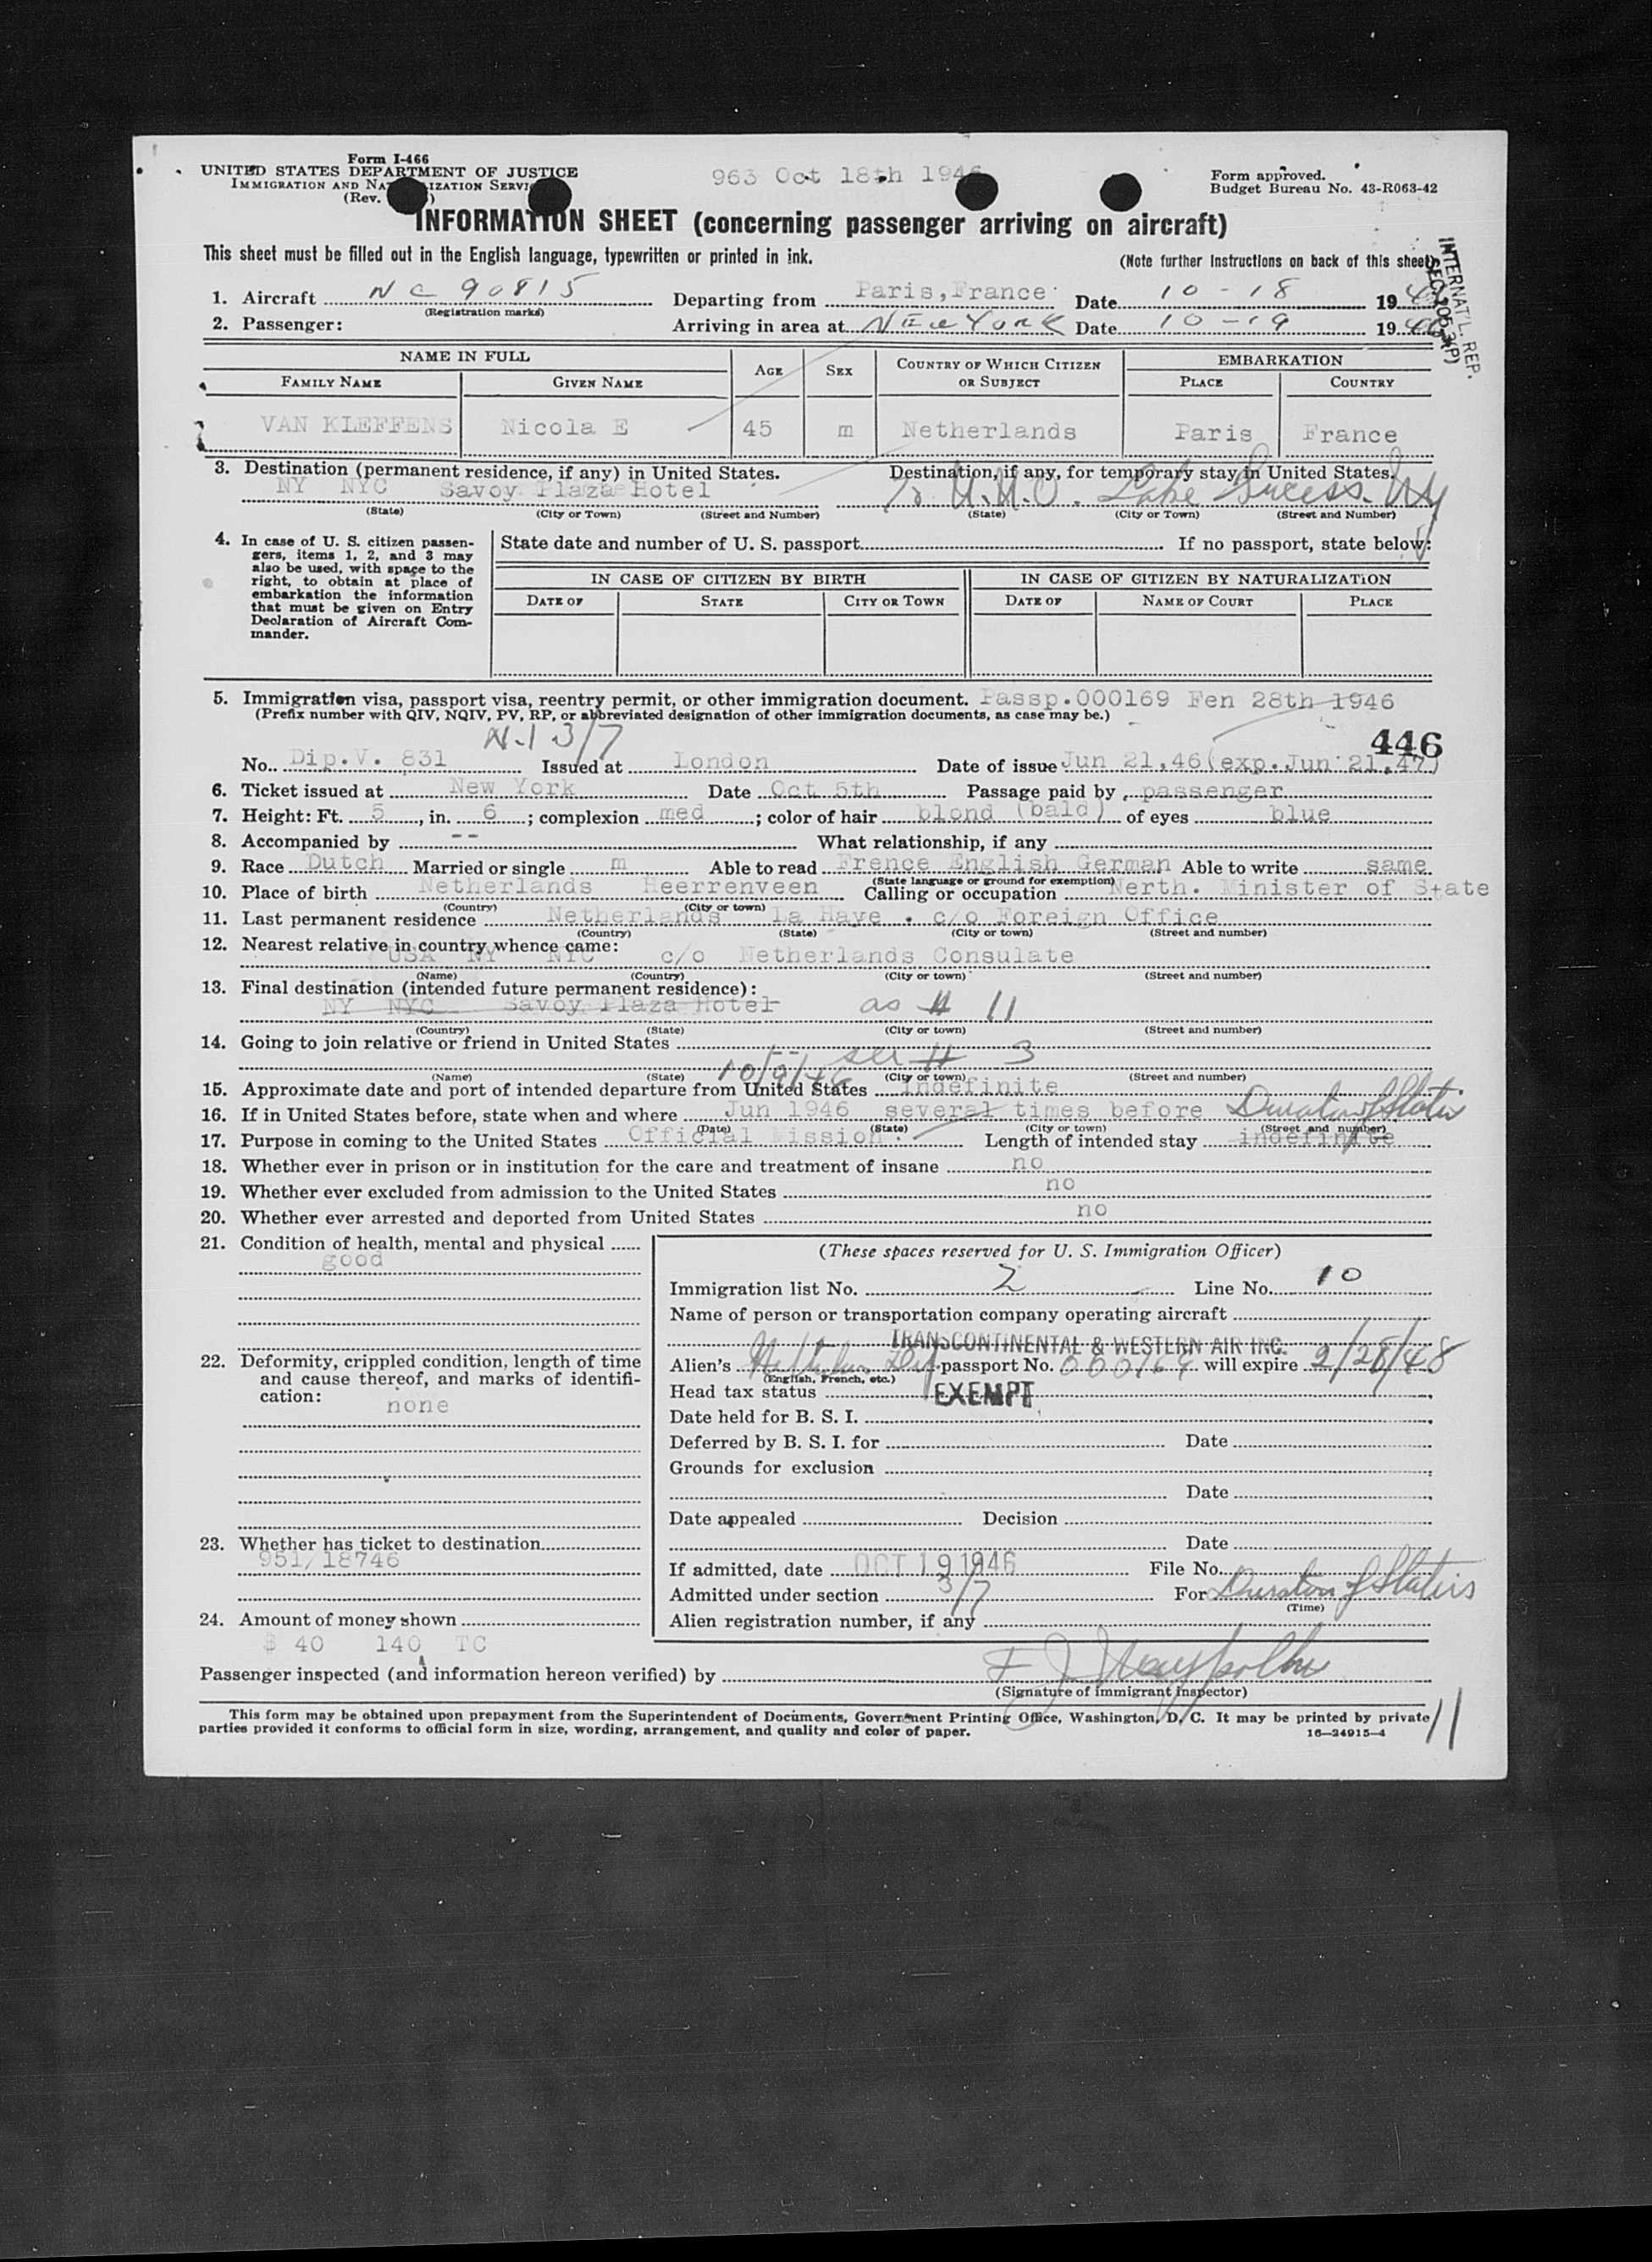 Form I-466
UNITED STATES DEPARTMENT OF JUSTICE
IMMIGRATION AND NATURALIZATION SERVICE
(Rev. )
963 Oct 18th 1946
Form approved.
Budget Bureau No. 43-R063-42
INFORMATION SHEET (concerning passenger arriving on aircraft)
This sheet must be filled out in the English language, typewritten or printed in ink.
(Note further instructions on back of this sheet)
INTERNAT'L. REP.
SEC. 205.3(P)
1. Aircraft NC 90815 Departing from Paris, France Date 10-18 1946
(Registration marks)
2. Passenger: Arriving in area at NEW YORK Date 10-19 1946
NAME IN FULL AGE SEX COUNTRY OF WHICH CITIZEN OR SUBJECT EMBARKATION
FAMILY NAME GIVEN NAME PLACE COUNTRY
VAN KLEFFENS Nicola E 45 m Netherlands Paris France
3. Destination (permanent residence, if any) in United States. Destination, if any, for temporary stay in United States.
NY NYC Savoy Plaza Hotel U.N.O. Lake Success. NY
(State) (City or Town) (Street and Number) (State) (City or Town) (Street and Number)
4. In case of U. S. citizen passengers, items 1, 2, and 3 may also be used, with space to the right, to obtain at place of embarkation the information that must be given on Entry Declaration of Aircraft Commander.
State date and number of U. S. passport If no passport, state below:
IN CASE OF CITIZEN BY BIRTH IN CASE OF CITIZEN BY NATURALIZATION
DATE OF STATE CITY OR TOWN DATE OF NAME OF COURT PLACE
5. Immigration visa, passport visa, reentry permit, or other immigration document. Passp.000169 Fen 28th 1946
(Prefix number with QIV, NQIV, PV, RP, or abbreviated designation of other immigration documents, as case may be.)
N-1 3/7
446
No. Dip.V. 831 Issued at London Date of issue Jun 21,46(exp.Jun 21,47)
6. Ticket issued at New York Date Oct 5th Passage paid by passenger
7. Height: Ft. 5, in. 6; complexion med; color of hair blond (bald) of eyes blue
8. Accompanied by -- What relationship, if any
9. Race Dutch Married or single m Able to read Frence English German Able to write same
(State language or ground for exemption)
10. Place of birth Netherlands Heerrenveen Calling or occupation Nerth. Minister of State
(Country) (City or town)
11. Last permanent residence Netherlands La Haye . c/o Foreign Office
(Country) (State) (City or town) (Street and number)
12. Nearest relative in country whence came:
USA NY NYC c/o Netherlands Consulate
(Name) (Country) (City or town) (Street and number)
13. Final destination (intended future permanent residence):
NY NYC Savoy Plaza Hotel as # 11
(Country) (State) (City or town) (Street and number)
14. Going to join relative or friend in United States --
see # 3
(Name) (State) (City or town) (Street and number)
10/9/46
15. Approximate date and port of intended departure from United States indefinite
16. If in United States before, state when and where Jun 1946 several times before Duration of Status
(Date) (State) (City or town) (Street and number)
17. Purpose in coming to the United States Official Mission. Length of intended stay indefinite
18. Whether ever in prison or in institution for the care and treatment of insane no
19. Whether ever excluded from admission to the United States no
20. Whether ever arrested and deported from United States no
21. Condition of health, mental and physical
good
22. Deformity, crippled condition, length of time and cause thereof, and marks of identification:
none
23. Whether has ticket to destination
951/18746
24. Amount of money shown
$ 40 140 TC
(These spaces reserved for U. S. Immigration Officer)
Immigration list No. 2 Line No. 10
Name of person or transportation company operating aircraft
TRANSCONTINENTAL & WESTERN AIR INC.
Alien's Dip. passport No. 000169 will expire 2/28/48
(English, French, etc.)
Head tax status EXEMPT
Date held for B. S. I.
Deferred by B. S. I. for Date
Grounds for exclusion
Date
Date appealed Decision
Date
If admitted, date OCT 19 1946 File No.
Admitted under section 3/7 For Duration of Status
(Time)
Alien registration number, if any
Passenger inspected (and information hereon verified) by
(Signature of Immigrant Inspector)
This form may be obtained upon prepayment from the Superintendent of Documents, Government Printing Office, Washington, D. C. It may be printed by private
parties provided it conforms to official form in size, wording, arrangement, and quality and color of paper.
16—24915-4
11